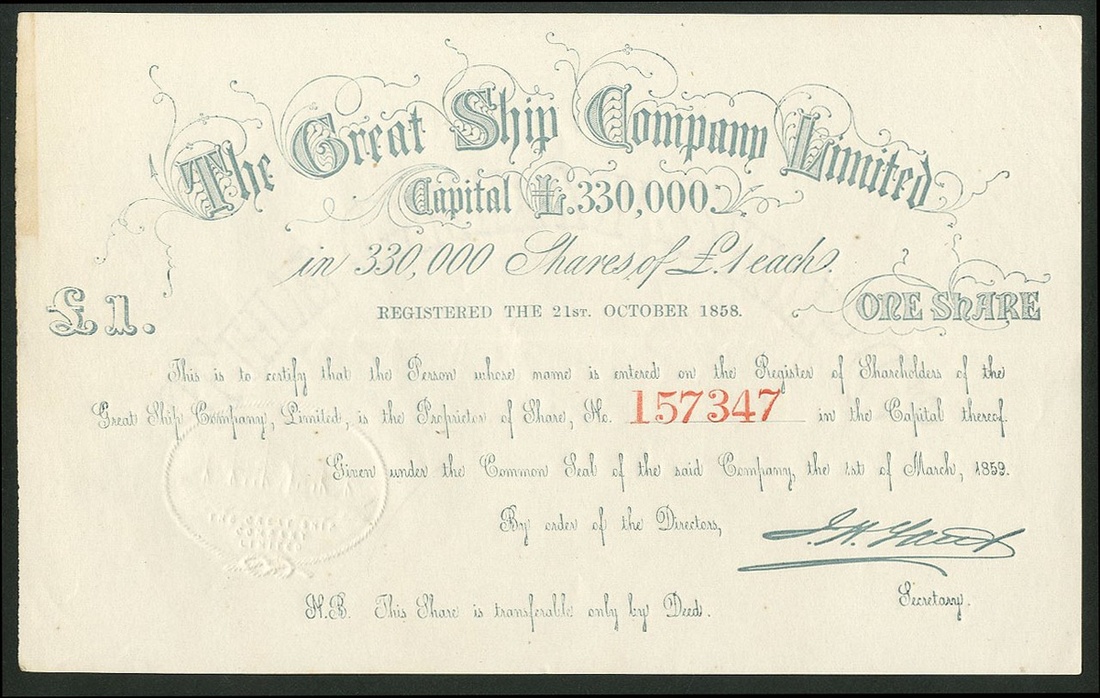 The Great Ship Company Limited
Capital £.330,000.
in 330,000 Shares, of £.1 each.
£1.
REGISTERED THE 21ST. OCTOBER 1858.
ONE SHARE
This is to certify that the Person whose name is entered on the Register of Shareholders of the
Great Ship Company, Limited, is the Proprietor of Share, No. 157347 in the Capital thereof.
Given under the Common Seal of the said Company, the 1st of March, 1859.
By order of the Directors,
Secretary.
N.B. This Share is transferable only by Deed.